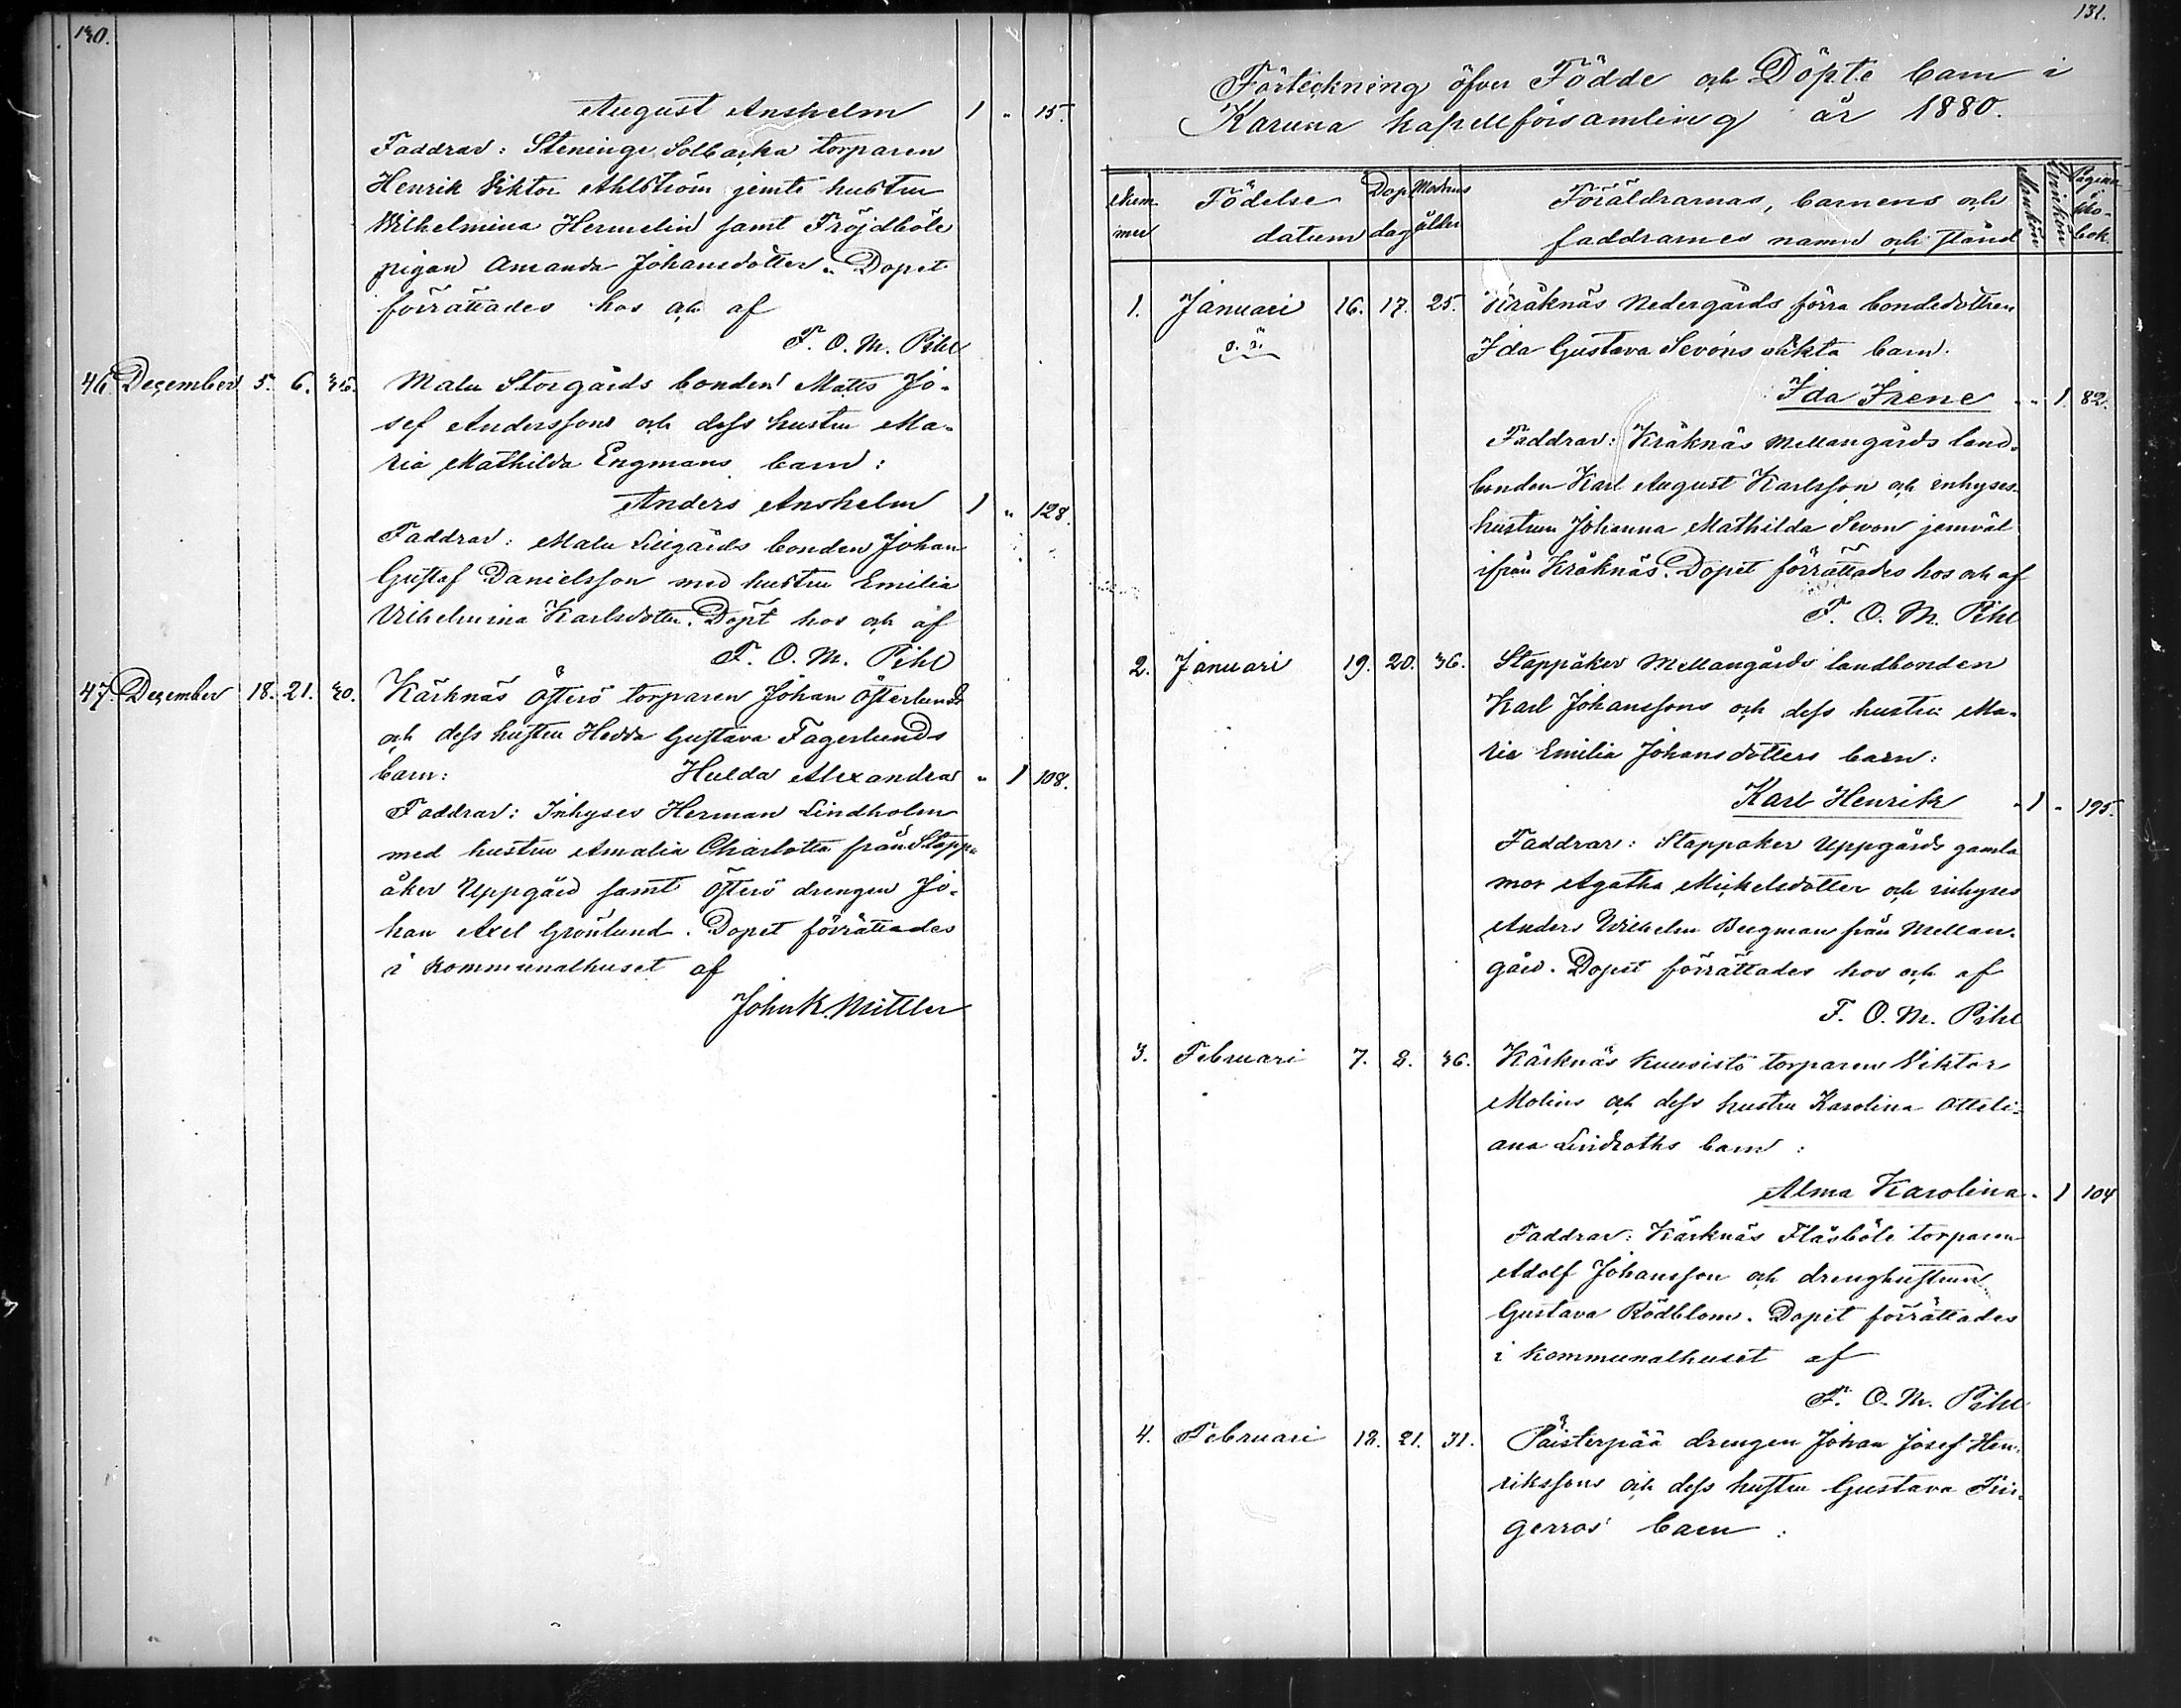 130.
August Anshelm 1 " 15.
Faddrar: Steninge Solbacka torparen
Henrik Viktor Ahlström jemte hustru
Wilhelmina Hermelin samt Fröjdböle
pigan Amanda Johansdotter. Dopet
förrättades hos och af
F. O. M. Pihl
46 December 5. 6. 36. Malu Storgårds bonden Matts Jo-
sef Anderssons och dess hustru Ma-
ria Mathilda Engmans barn:
Anders Anshelm 1 " 128.
Faddrar: Malu Lillgårds bonden Johan
Gustaf Danielsson med hustru Emilia
Vilhelmina Karlsdotter. Döpt hos och af
F. O. M. Pihl
47. December 18. 21. 30. Kärknäs Österö torparen Johan Österlunds
och dess hustru Hedda Gustava Fagerlunds
barn: Hulda Alexandra " 1 108.
Faddrar: Inhyses Herman Lindholm
med hustru Amalia Charlotta från Stapp-
åker Uppgård samt Österö drengen Jo-
han Axel Grönlund. Dopet förrättades
i kommunalhuset af
Joh. K. Mittler
131.
Förteckning öfver Födde och Döpte barn i
Karuna kapellförsamling år 1880.
Num- Födelse Dop Modrens Föräldrarnas, barnens och Mankön Qvinkön Pagina
mer datum dag ålder faddrarnes namn och stånd i kko-
bok
1. Januari 16. 17. 25. Kråknäs Nedergårds förra bondedottren
o. ä. Ida Gustava Sevóns oäkta barn.
Ida Irene " 1. 82.
Faddrar: Kråknäs Mellangårds land-
bonden Karl August Karlsson och inhyses-
hustrun Johanna Mathilda Sevon jemväl
ifrån Kråknäs. Dopet förrättades hos och af
F. O. M. Pihl
2. Januari 19. 20. 36. Stappåker Mellangårds landbonden
Karl Johanssons och dess hustru Ma-
ria Emilia Johansdotters barn:
Karl Henrik 1 " 195.
Faddrar: Stappaker Uppgårds gamla
mor Agatha Michelsdotter och inhyses
Anders Wilhelm Bergman från Mellan-
gård. Dopet förrättades hos och af
F. O. M. Pihl
3. Februari 7. 8. 36. Kärknäs Kuusisto torparen Viktor
Molins och dess hustru Karolina Otteli-
ana Lindroths barn:
Alma Karolina " 1 104
Faddrar: Kärknäs Flåsböle torparen
Adolf Johansson och drenghustrun
Gustava Rödblom. Dopet förrättades
i kommunalhuset af
F. O. M. Pihl
4. Februari 18. 21. 31. Päisterpää drengen Johan Josef Hen-
rikssons och dess hustru Gustava Fin-
gerroos' barn: